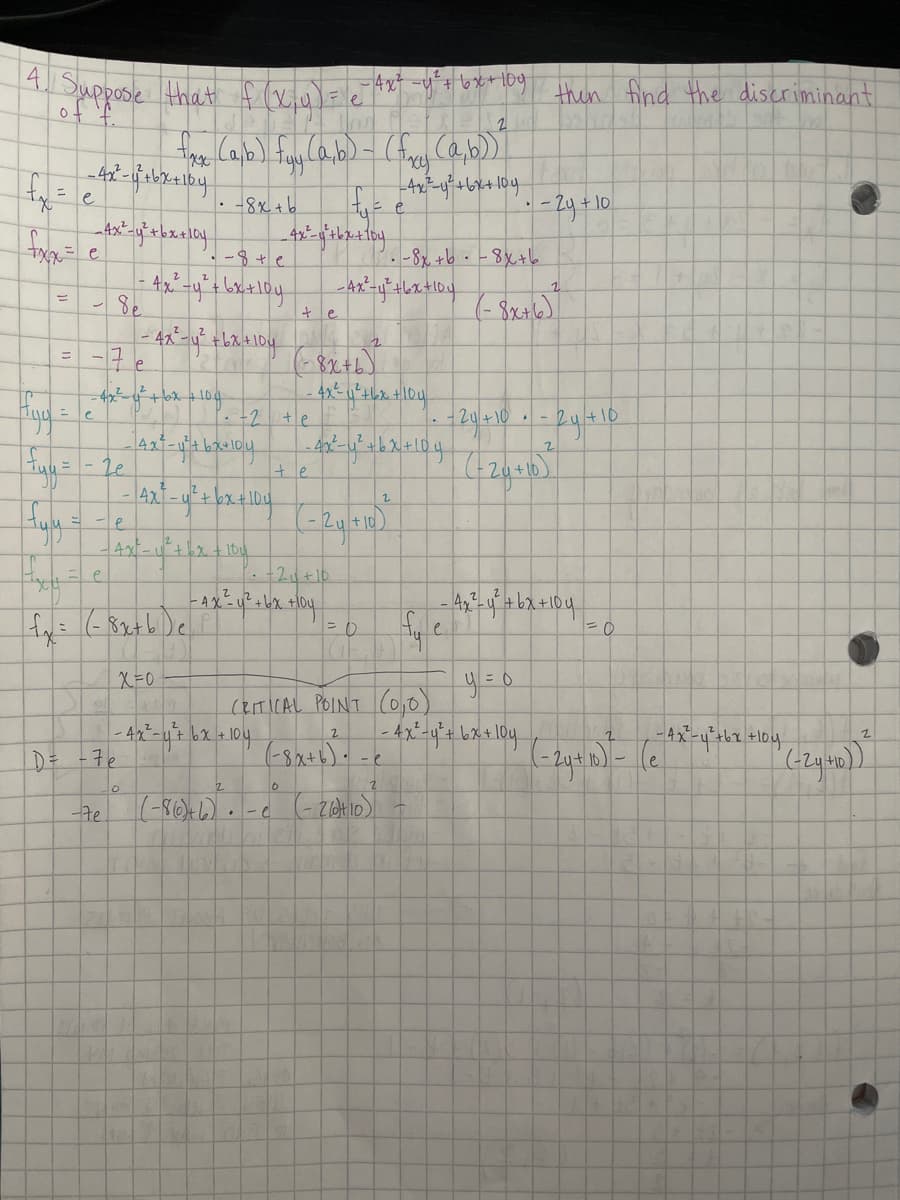 4. Suppose that f(x,y) = e^(-4x²-y²+6x+10y) then find the discriminant
of f.
fxx(a,b) fyy(a,b) - (fxy(a,b))²
fx = e^(-4x²-y²+6x+10y) · -8x+6   fy = e^(-4x²-y²+6x+10y) · -2y+10
fxx = e^(-4x²-y²+6x+10y) · -8 + e^(-4x²-y²+6x+10y) · -8x+6 · -8x+6
= -8e^(-4x²-y²+6x+10y) + e^(-4x²-y²+6x+10y) (-8x+6)²
= -7e^(-4x²-y²+6x+10y) (-8x+6)²
fyy = e^(-4x²-y²+6x+10y) · -2 + e^(-4x²-y²+6x+10y) · -2y+10 · -2y+10
fyy = -2e^(-4x²-y²+6x+10y) + e^(-4x²-y²+6x+10y) (-2y+10)²
fyy = -e^(-4x²-y²+6x+10y) (-2y+10)²
fxy = e^(-4x²-y²+6x+10y) · -2y+10
fx = (-8x+6)e^(-4x²-y²+6x+10y) = 0   fy e^(-4x²-y²+6x+10y) = 0
x=0   y=0
CRITICAL POINT (0,0)
D = -7e^(-4x²-y²+6x+10y) (-8x+6)² · -e^(-4x²-y²+6x+10y) (-2y+10)² - (e^(-4x²-y²+6x+10y) (-2y+10))²
-7e^0 (-8(0)+6)² · -e^0 (-2(0)+10)² -